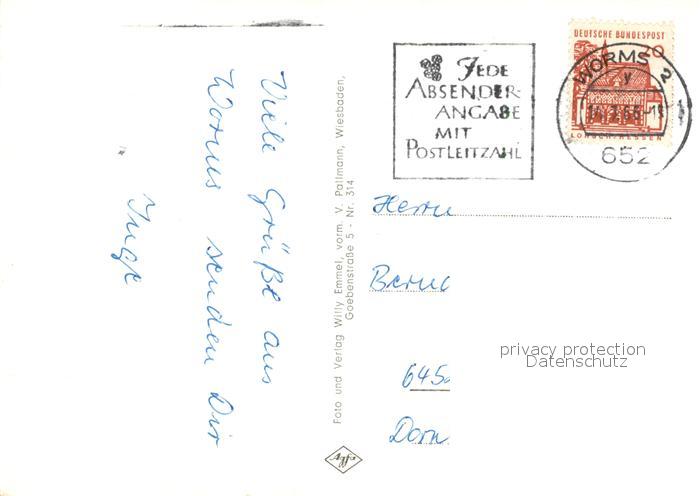 Viele Grüße aus
Worms senden Dir
Inge
Foto und Verlag Willy Emmel, vorm. V. Pallmann, Wiesbaden,
Goebenstraße 5 - Nr. 314
Agfa
JEDE
ABSENDER-
ANGABE
MIT
POSTLEITZAHL
DEUTSCHE BUNDESPOST
20
WORMS 2
y
LORSCH/HESSEN
652
Herrn
645
Dorn
privacy protection
Datenschutz